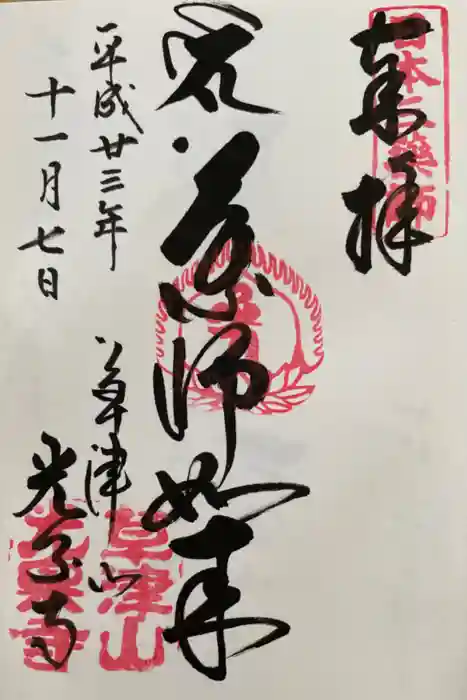 奉拝
日本三薬師
薬師如来
平成廿三年
十一月七日
草津山
光泉寺
草津山
光泉寺